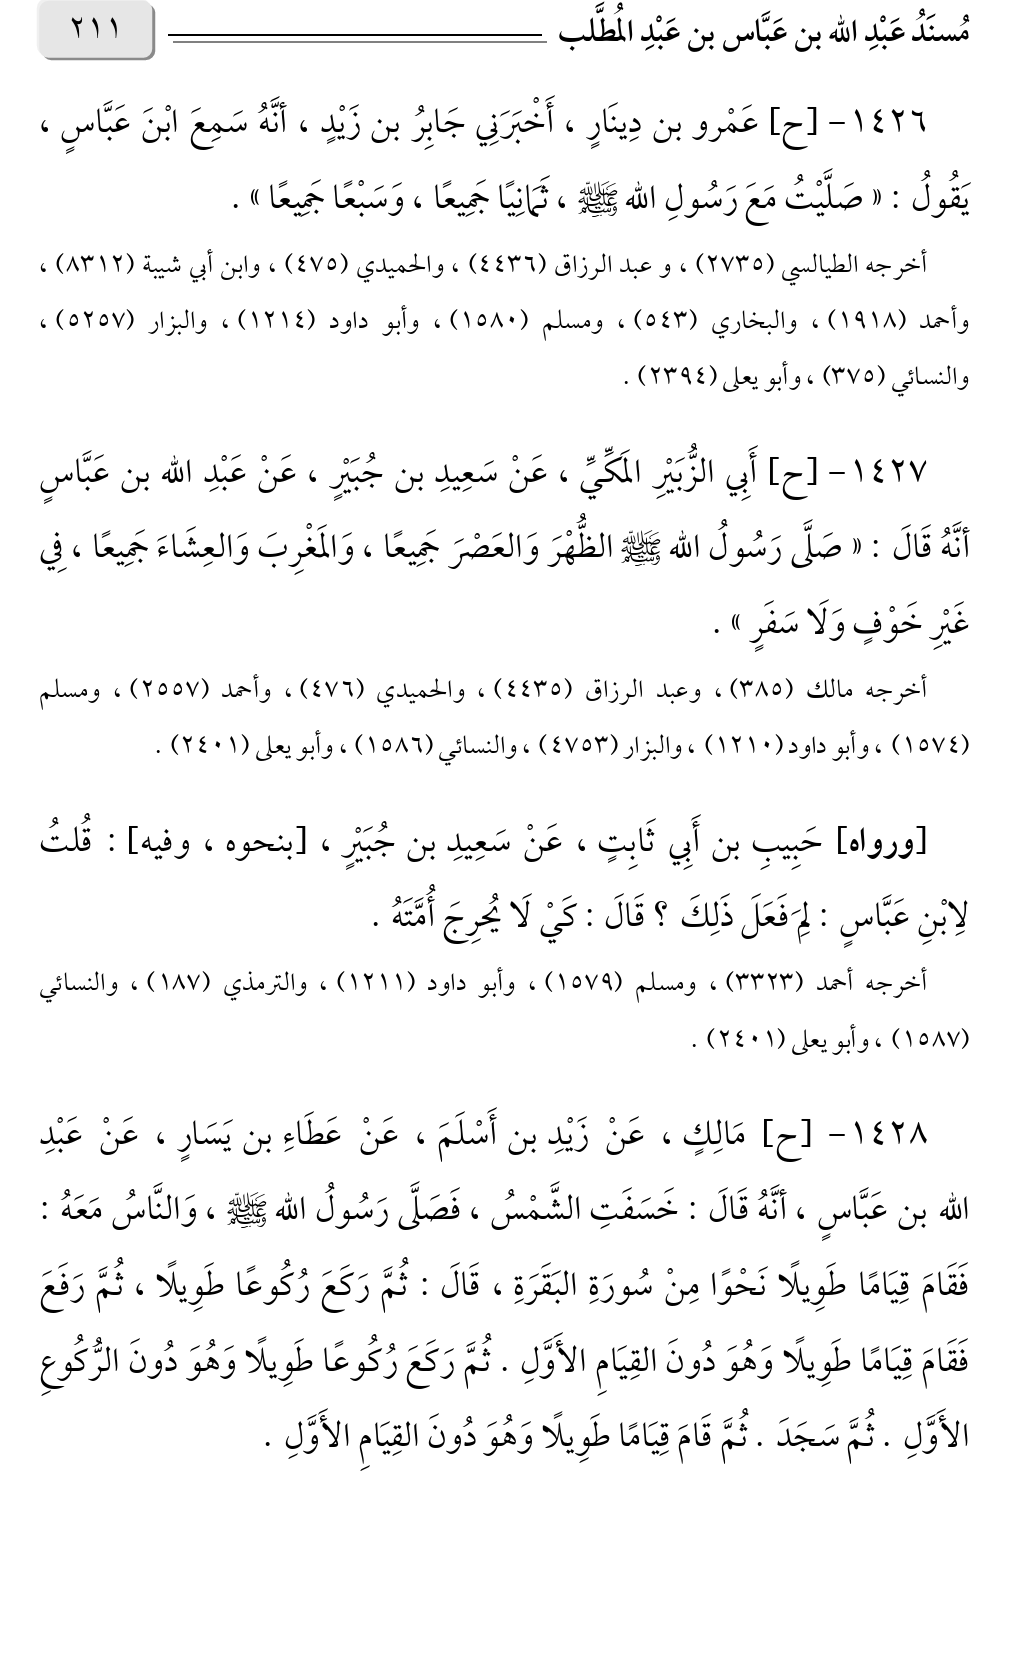 مُسنَدُ عَبْدِ الله بن عَبَّاس بن عَبْدِ المُطَّلب ٢١١
١٤٢٦- [ح] عَمْرو بن دِينَارٍ ، أَخْبَرَنِي جَابِرُ بن زَيْدٍ ، أنَّهُ سَمِعَ ابْنَ عَبَّاسٍ ،
يَقُولُ : « صَلَّيْتُ مَعَ رَسُولِ الله ﷺ ، ثَمَانِيًا جَمِيعًا ، وَسَبْعًا جَمِيعًا » .
أخرجه الطيالسي (٢٧٣٥) ، و عبد الرزاق (٤٤٣٦) ، والحميدي (٤٧٥) ، وابن أبي شيبة (٨٣١٢) ،
وأحمد (١٩١٨) ، والبخاري (٥٤٣) ، ومسلم (١٥٨٠) ، وأبو داود (١٢١٤) ، والبزار (٥٢٥٧) ،
والنسائي (٣٧٥) ، وأبو يعلى (٢٣٩٤) .
١٤٢٧- [ح] أَبِي الزُّبَيْرِ المَكِّيِّ ، عَنْ سَعِيدِ بن جُبَيْرٍ ، عَنْ عَبْدِ الله بن عَبَّاسٍ
أنَّهُ قَالَ : « صَلَّى رَسُولُ الله ﷺ الظُّهْرَ وَالعَصْرَ جَمِيعًا ، وَالمَغْرِبَ وَالعِشَاءَ جَمِيعًا ، فِي
غَيْرِ خَوْفٍ وَلَا سَفَرٍ » .
أخرجه مالك (٣٨٥) ، وعبد الرزاق (٤٤٣٥) ، والحميدي (٤٧٦) ، وأحمد (٢٥٥٧) ، ومسلم
(١٥٧٤) ، وأبو داود (١٢١٠) ، والبزار (٤٧٥٣) ، والنسائي (١٥٨٦) ، وأبو يعلى (٢٤٠١) .
[ورواه] حَبِيبِ بن أَبِي ثَابِتٍ ، عَنْ سَعِيدِ بن جُبَيْرٍ ، [بنحوه ، وفيه] : قُلتُ
لِابْنِ عَبَّاسٍ : لِمَ فَعَلَ ذَلِكَ ؟ قَالَ : كَيْ لَا يُحرِجَ أُمَّتَهُ .
أخرجه أحمد (٣٣٢٣) ، ومسلم (١٥٧٩) ، وأبو داود (١٢١١) ، والترمذي (١٨٧) ، والنسائي
(١٥٨٧) ، وأبو يعلى (٢٤٠١) .
١٤٢٨- [ح] مَالِكٍ ، عَنْ زَيْدِ بن أَسْلَمَ ، عَنْ عَطَاءِ بن يَسَارٍ ، عَنْ عَبْدِ
الله بن عَبَّاسٍ ، أنَّهُ قَالَ : خَسَفَتِ الشَّمْسُ ، فَصَلَّى رَسُولُ الله ﷺ ، وَالنَّاسُ مَعَهُ :
فَقَامَ قِيَامًا طَوِيلًا نَحْوًا مِنْ سُورَةِ البَقَرَةِ ، قَالَ : ثُمَّ رَكَعَ رُكُوعًا طَوِيلًا ، ثُمَّ رَفَعَ
فَقَامَ قِيَامًا طَوِيلًا وَهُوَ دُونَ القِيَامِ الأَوَّلِ . ثُمَّ رَكَعَ رُكُوعًا طَوِيلًا وَهُوَ دُونَ الرُّكُوعِ
الأَوَّلِ . ثُمَّ سَجَدَ . ثُمَّ قَامَ قِيَامًا طَوِيلًا وَهُوَ دُونَ القِيَامِ الأَوَّلِ .